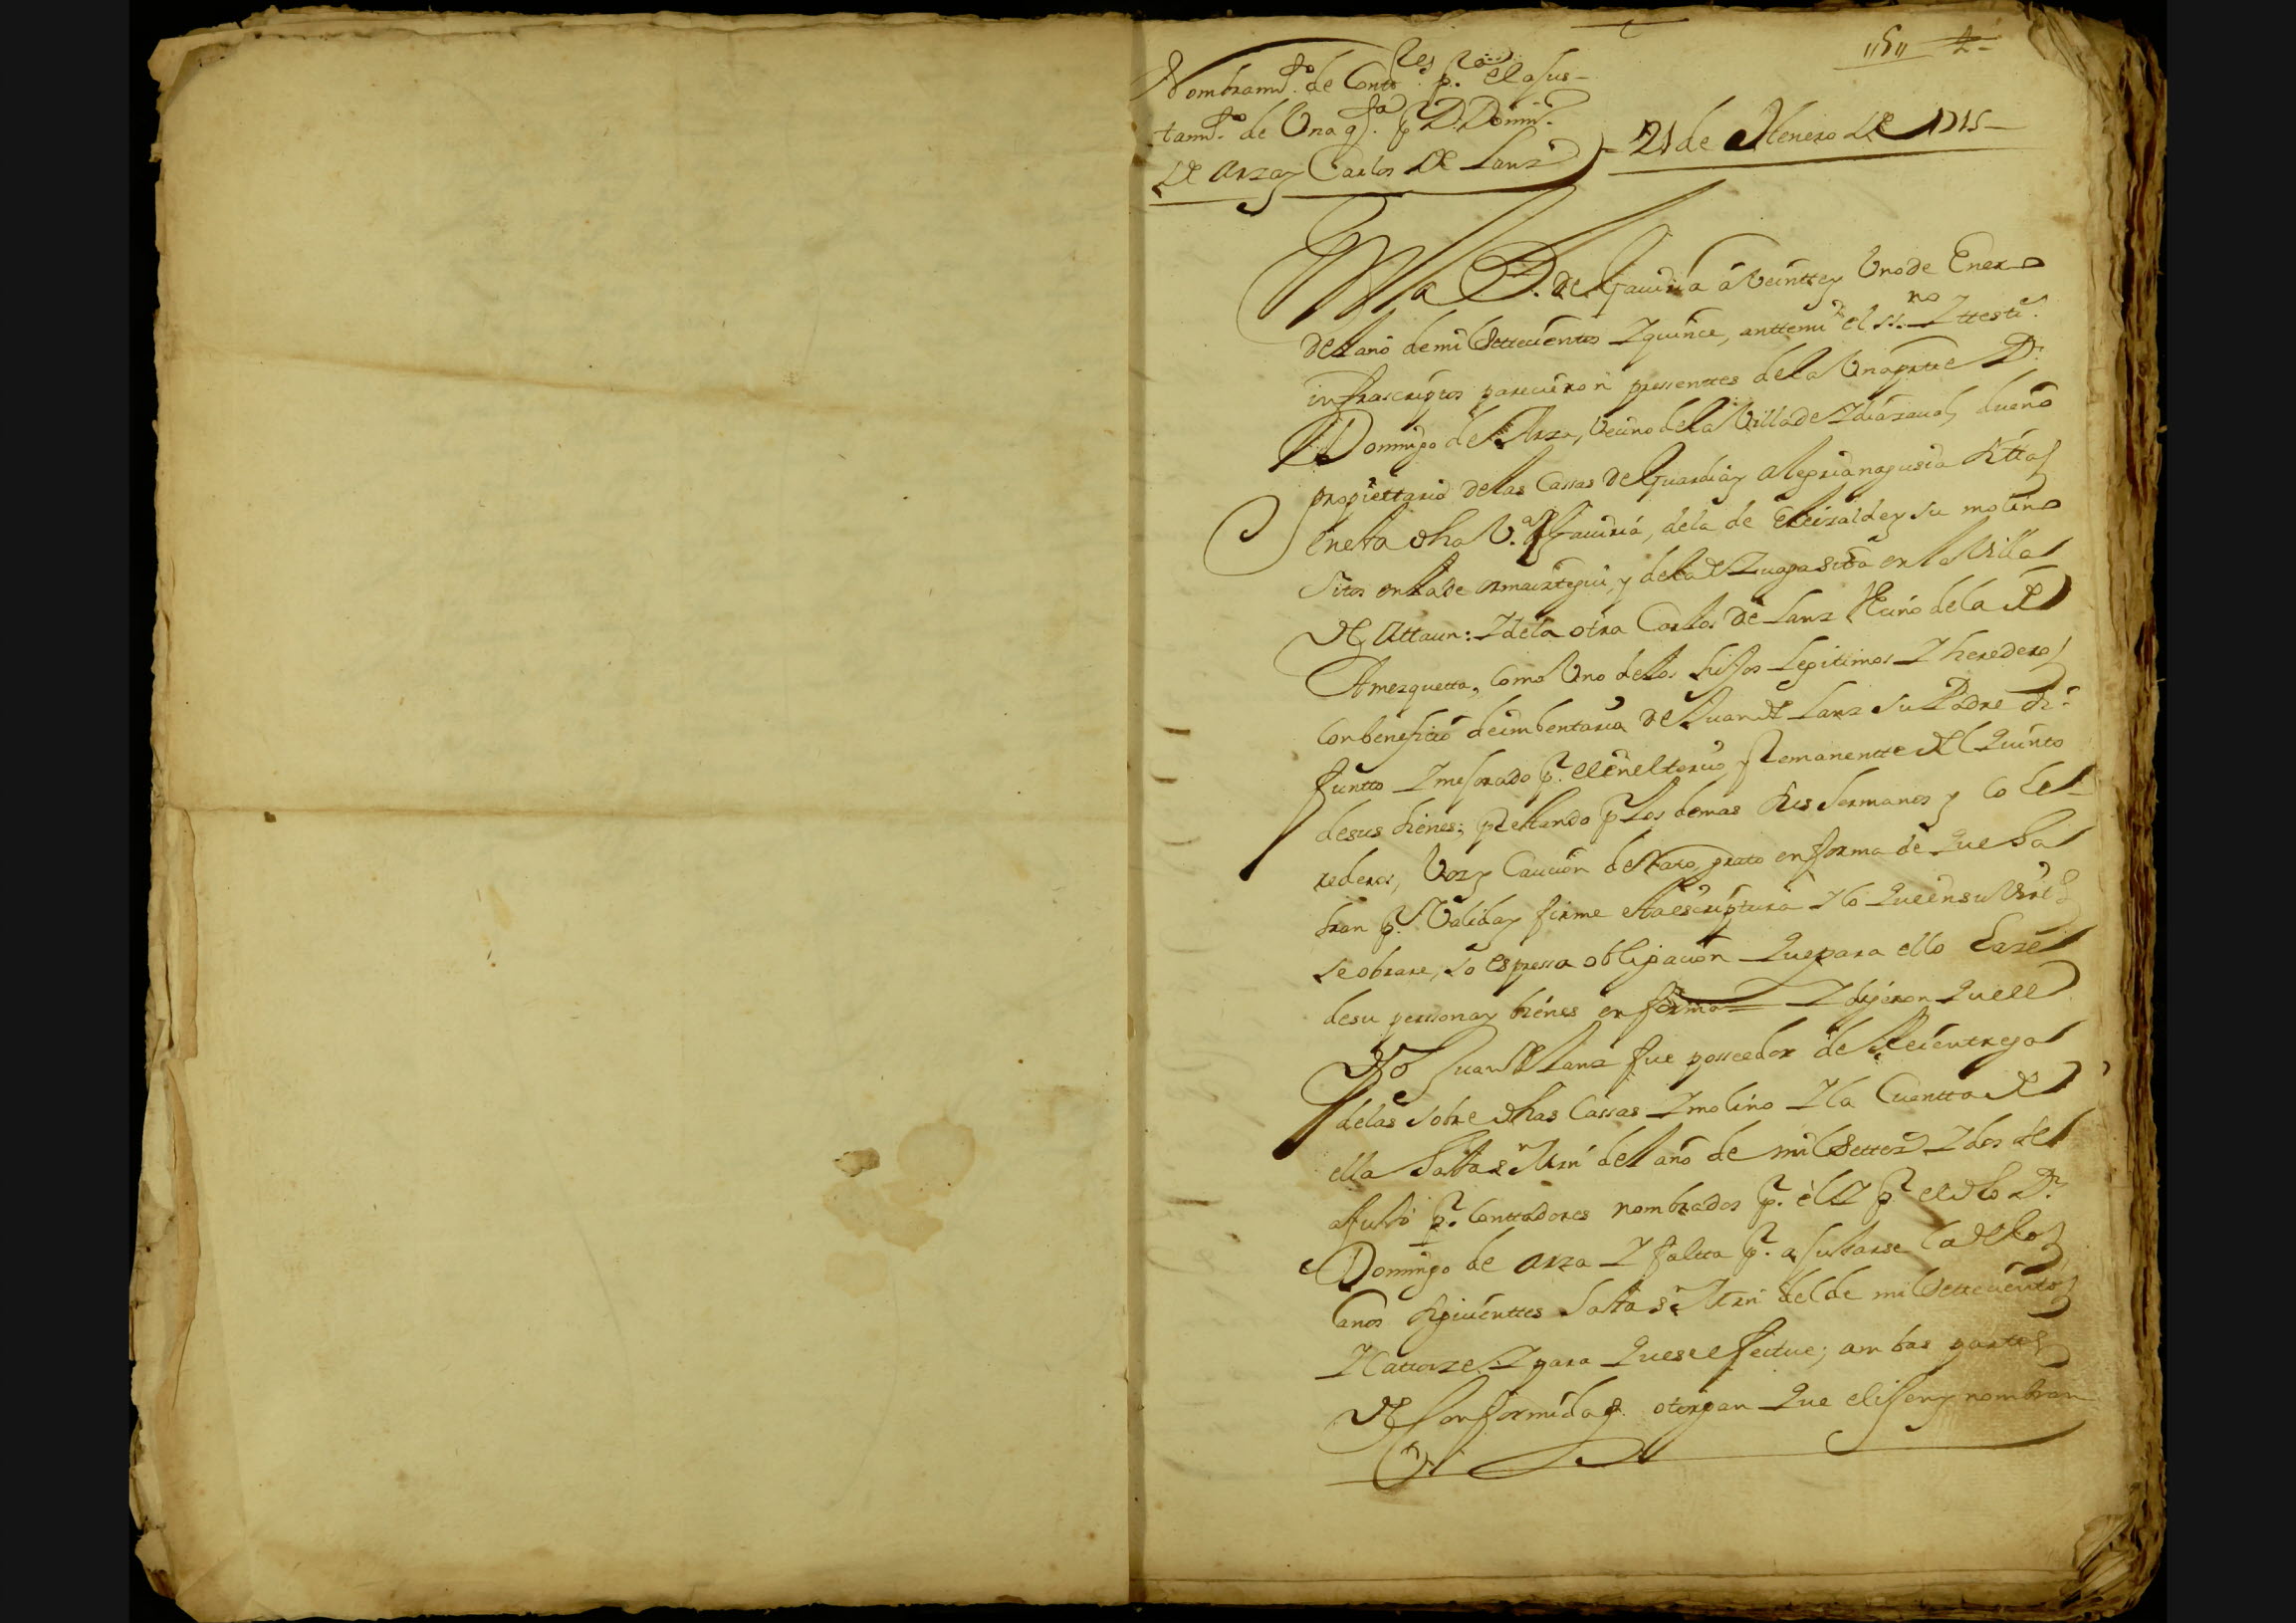 "5" 2
Nombram.to de Conto.res p.a el ajus-
tam.to de Una q.ta p.r D. Domin.o
de Arza y Carlos de Lanz
21 de Henero de 1715
En la V. de Gaviria a Veintte y Uno de Enero
del año de mil Settecientos Y quince, antte mi el ss.no Y testi.s
infrascriptos parecieron pressenttes de la Una partte D.n
Domingo de Arza, Vecino de la Villa de Ydiazaval, dueño
propiettario de las Cassas de Guardia y Alegria nagusia sittas
en esta dha V.a de Gaviria, de la de Eleizalde y su molino
sitos en la de Ormaiztegui, y de la de Zuaga sita en la Villa
de Attaun: Y de la otra Carlos de Lanz Vecino de la de
Amezquetta, como Uno de los hijos legitimos Y herederos
con beneficio de imbentario de Juan de Lanz su Padre di-
funtto Y mejorado p.r el en el tercio y remanentte del Quinto
de sus bienes; prestando p.r los demas sus hermanos y cohe-
rederos, Voz y Caucion de rato grato en forma de que ha
bran p.r Valida y firme esta escriptura Y lo que en su Virtd
se obrare, so espressa obligacion que para ello hace
de su perssona y bienes en forma = Y dijeron que el
dho Juan de Lanz fue posseedor de
de las sobre dhas Cassas Y molino Y la Cuentta de
ella hasta s.n Mrn del año de mil Settez.s Y dos se
ajusto p.r Conttadores nombrados p.r el Y p.r el dho D.n
Domingo de Arza Y faltta p.r ajustarse la de los
años siguienttes hasta s.n Mrn del de mil Settecientos
Y Cattorze. Y para que se efectue; ambas parttes
de Conformidad otorgan que elijen y nombran